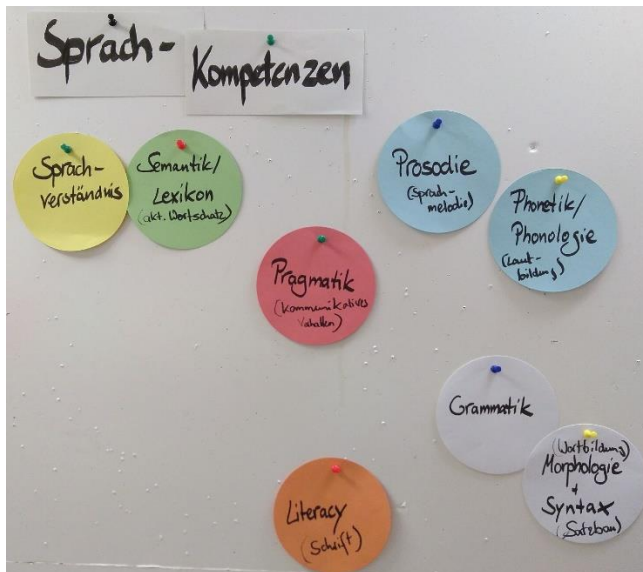 Sprach-
Kompetenzen
Sprach-
verständnis
Semantik/
Lexikon
(akt. Wortschatz)
Prosodie
(Sprach-
melodie)
Phonetik/
Phonologie
(Laut-
bildung)
Pragmatik
(kommunikatives
Verhalten)
Grammatik
(Wortbildung)
Morphologie
+
Syntax
(Satzbau)
Literacy
(Schrift)